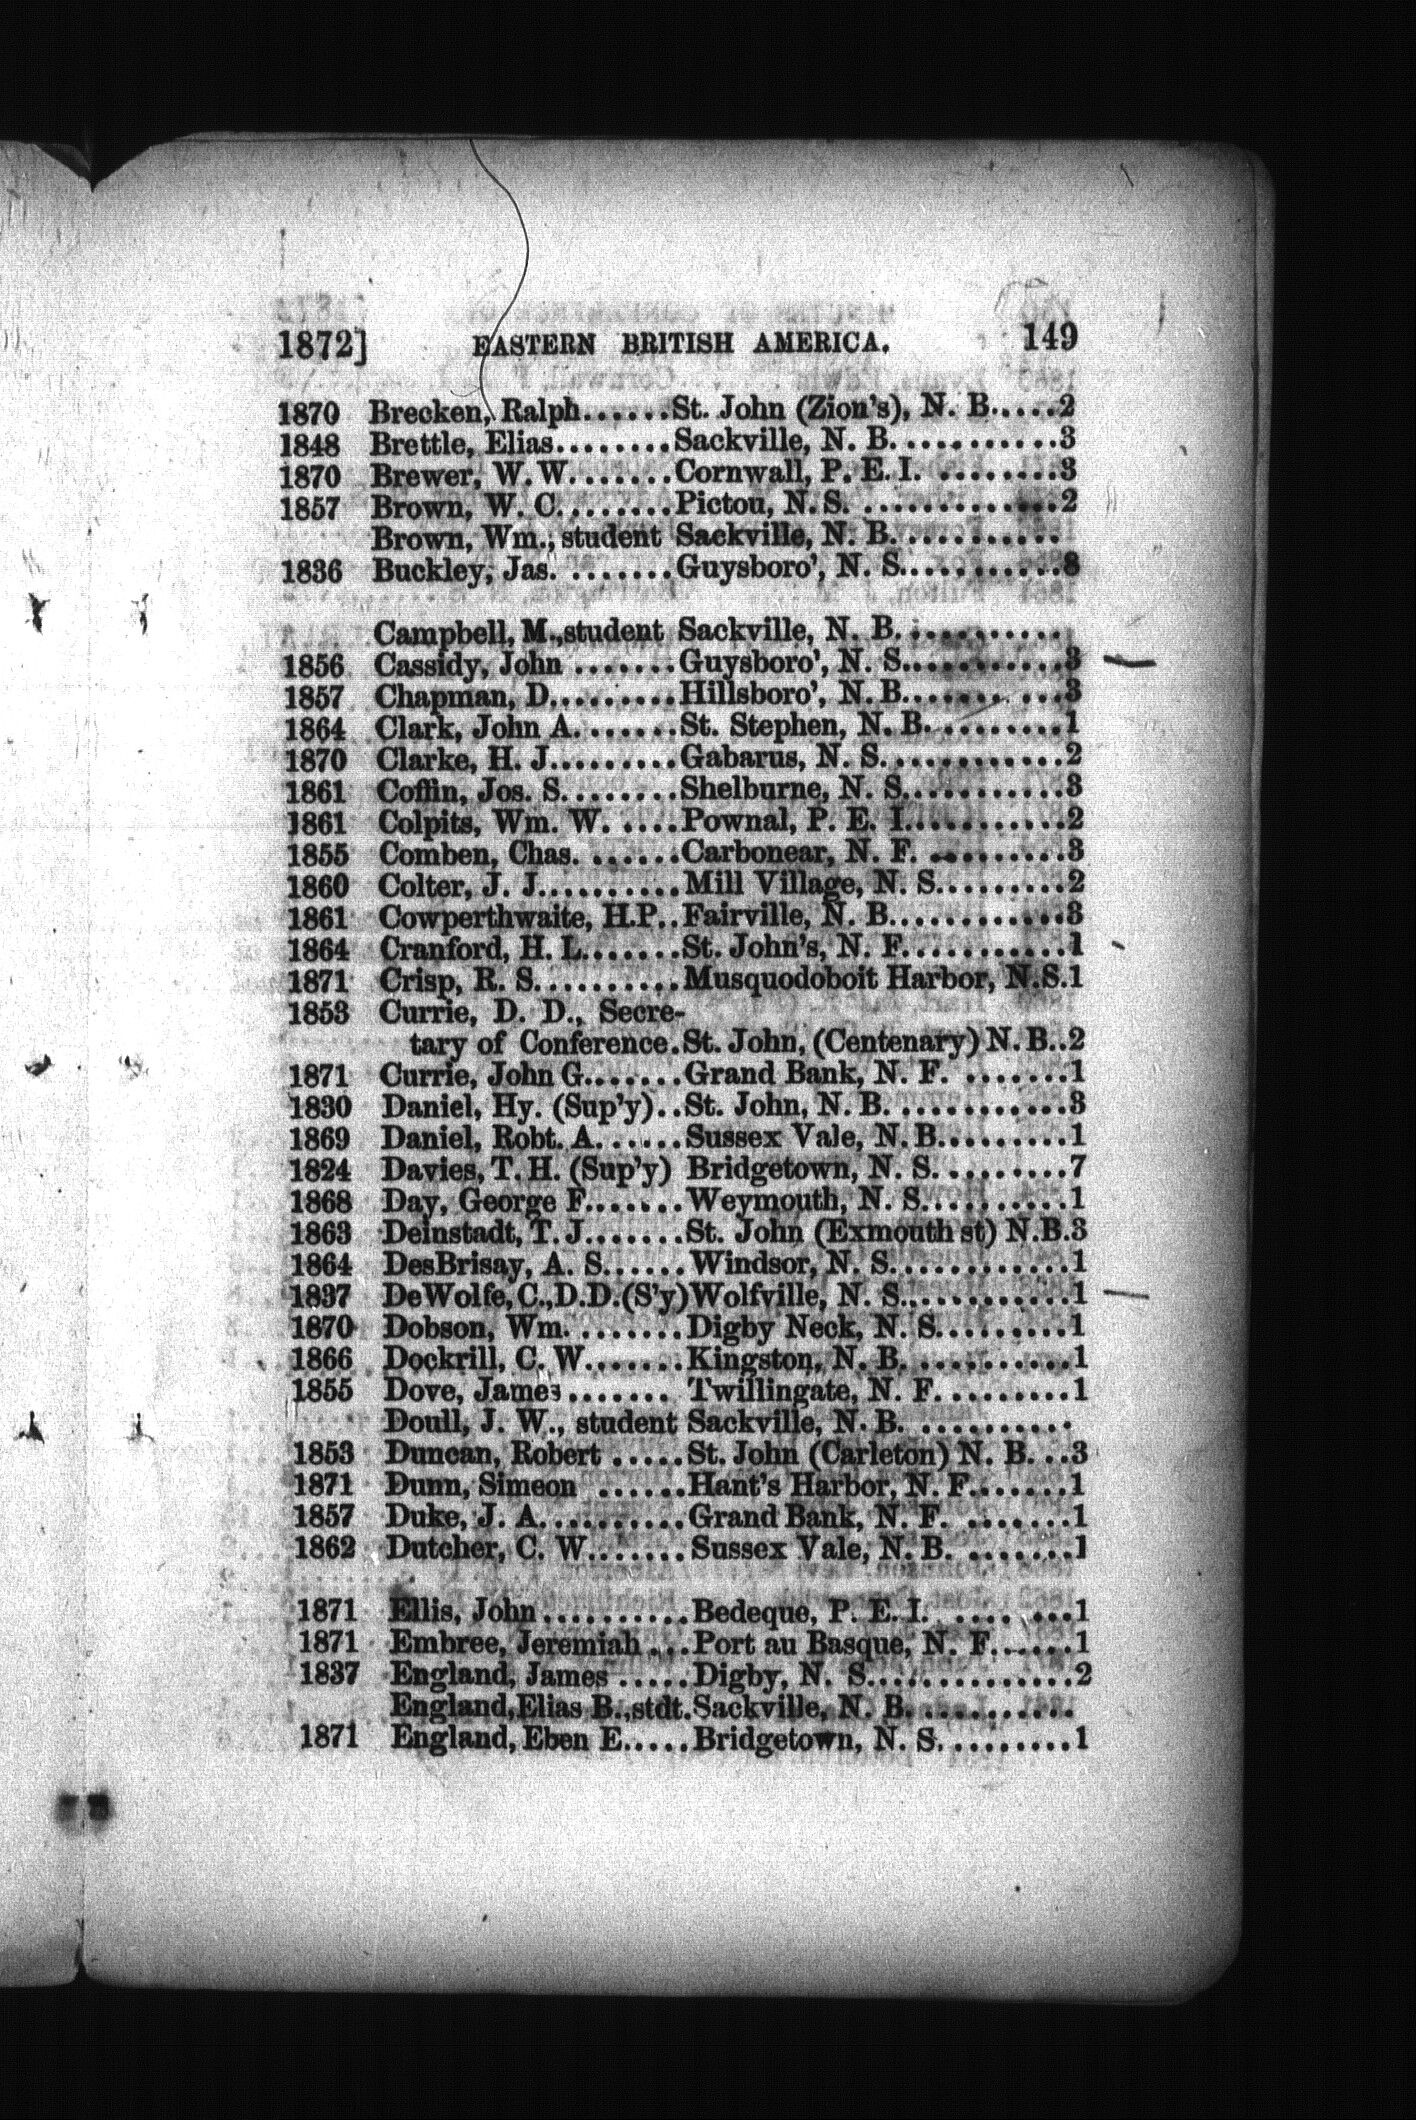 1872] EASTERN BRITISH AMERICA. 149
1870 Brecken, Ralph......St. John (Zion's), N. B.....2
1848 Brettle, Elias........Sackville, N. B...........3
1870 Brewer, W. W.......Cornwall, P. E. I. ........3
1857 Brown, W. C........Pictou, N. S. ............2
Brown, Wm., student Sackville, N. B...........
1836 Buckley, Jas. .......Guysboro', N. S...........8
Campbell, M., student Sackville, N. B...........
1856 Cassidy, John .......Guysboro', N. S...........3
1857 Chapman, D.........Hillsboro', N. B..........3
1864 Clark, John A.......St. Stephen, N. B.........1
1870 Clarke, H. J.........Gabarus, N. S............2
1861 Coffin, Jos. S........Shelburne, N. S...........3
1861 Colpits, Wm. W. ....Pownal, P. E. I...........2
1855 Comben, Chas. ......Carbonear, N. F. .........3
1860 Colter, J. J..........Mill Village, N. S.........2
1861 Cowperthwaite, H.P..Fairville, N. B............3
1864 Cranford, H. L.......St. John's, N. F...........1
1871 Crisp, R. S..........Musquodoboit Harbor, N.S.1
1853 Currie, D. D., Secre-
tary of Conference.St. John, (Centenary) N. B..2
1871 Currie, John G.......Grand Bank, N. F. .......1
1830 Daniel, Hy. (Sup'y)..St. John, N. B. ...........3
1869 Daniel, Robt. A......Sussex Vale, N. B.........1
1824 Davies, T. H. (Sup'y) Bridgetown, N. S. ........7
1868 Day, George F.......Weymouth, N. S..........1
1863 Deinstadt, T. J.......St. John (Exmouth st) N.B.3
1864 DesBrisay, A. S......Windsor, N. S............1
1837 DeWolfe, C., D.D. (S'y) Wolfville, N. S...........1
1870 Dobson, Wm. .......Digby Neck, N. S.........1
1866 Dockrill, C. W.......Kingston, N. B...........1
1855 Dove, James ....... Twillingate, N. F.........1
Doull, J. W., student Sackville, N. B. ..........
1853 Duncan, Robert .....St. John (Carleton) N. B...3
1871 Dunn, Simeon ......Hant's Harbor, N. F.......1
1857 Duke, J. A..........Grand Bank, N. F. .......1
1862 Dutcher, C. W.......Sussex Vale, N. B. .......1
1871 Ellis, John..........Bedeque, P. E. I. .... ...1
1871 Embree, Jeremiah ...Port au Basque, N. F......1
1837 England, James .....Digby, N. S..............2
England, Elias B., stdt.Sackville, N. B...........
1871 England, Eben E.....Bridgetown, N. S. ........1